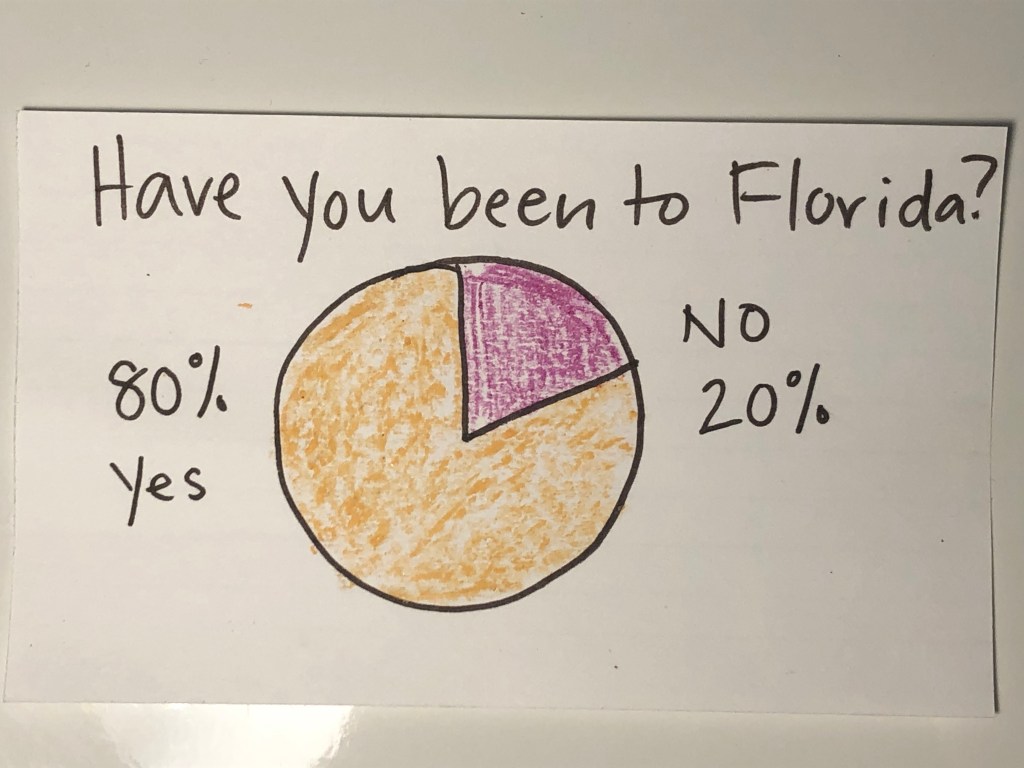 Have you been to Florida?
80%
Yes
NO
20%